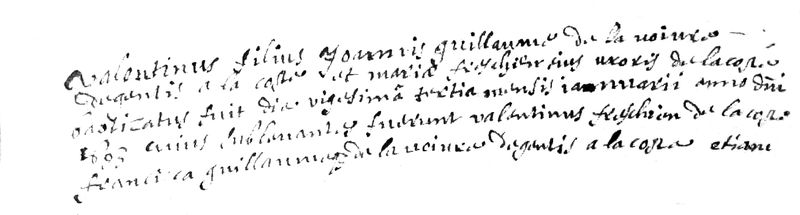 Valentinus filius Joannis guillaume de la voivre
degentis a la coste et mariæ freschien eius uxoris de la coste
baptizatus fuit die vigesimâ tertia mensis iannuarii anno dni
1693 cuius sublevantes fuerunt valentinus freschien de la coste
francisca guillaume de la voivre degentis a la coste etiam